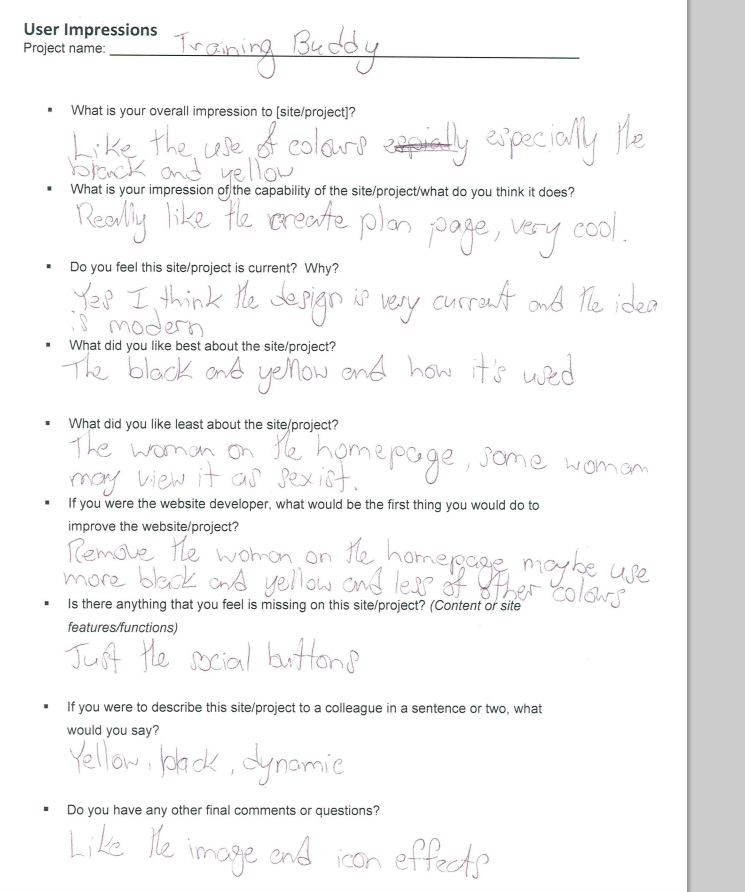 User Impressions
Project name: Training Buddy
▪ What is your overall impression to [site/project]?
Like the use of colours especially the
black and yellow
▪ What is your impression of the capability of the site/project/what do you think it does?
Really like the create plan page, very cool.
▪ Do you feel this site/project is current? Why?
Yes I think the design is very current and the idea
is modern
▪ What did you like best about the site/project?
The black and yellow and how it's used
▪ What did you like least about the site/project?
The woman on the homepage, some woman
may view it as sexist.
▪ If you were the website developer, what would be the first thing you would do to
improve the website/project?
Remove the woman on the homepage maybe use
more black and yellow and less of other colours
▪ Is there anything that you feel is missing on this site/project? (Content or site
features/functions)
Just the social buttons
▪ If you were to describe this site/project to a colleague in a sentence or two, what
would you say?
Yellow, black, dynamic
▪ Do you have any other final comments or questions?
Like the image and icon effects